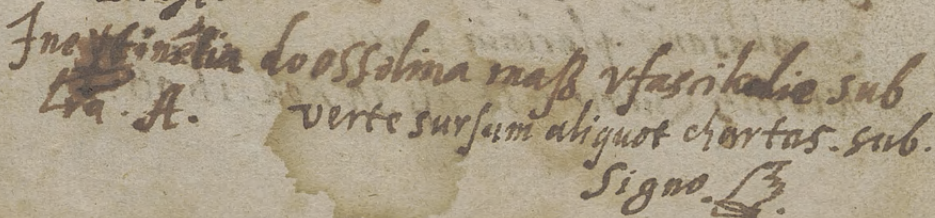 do ossolina masz v fascikulie sub
Lra. A. verte sursum aliquot chartas. sub.
Signo.